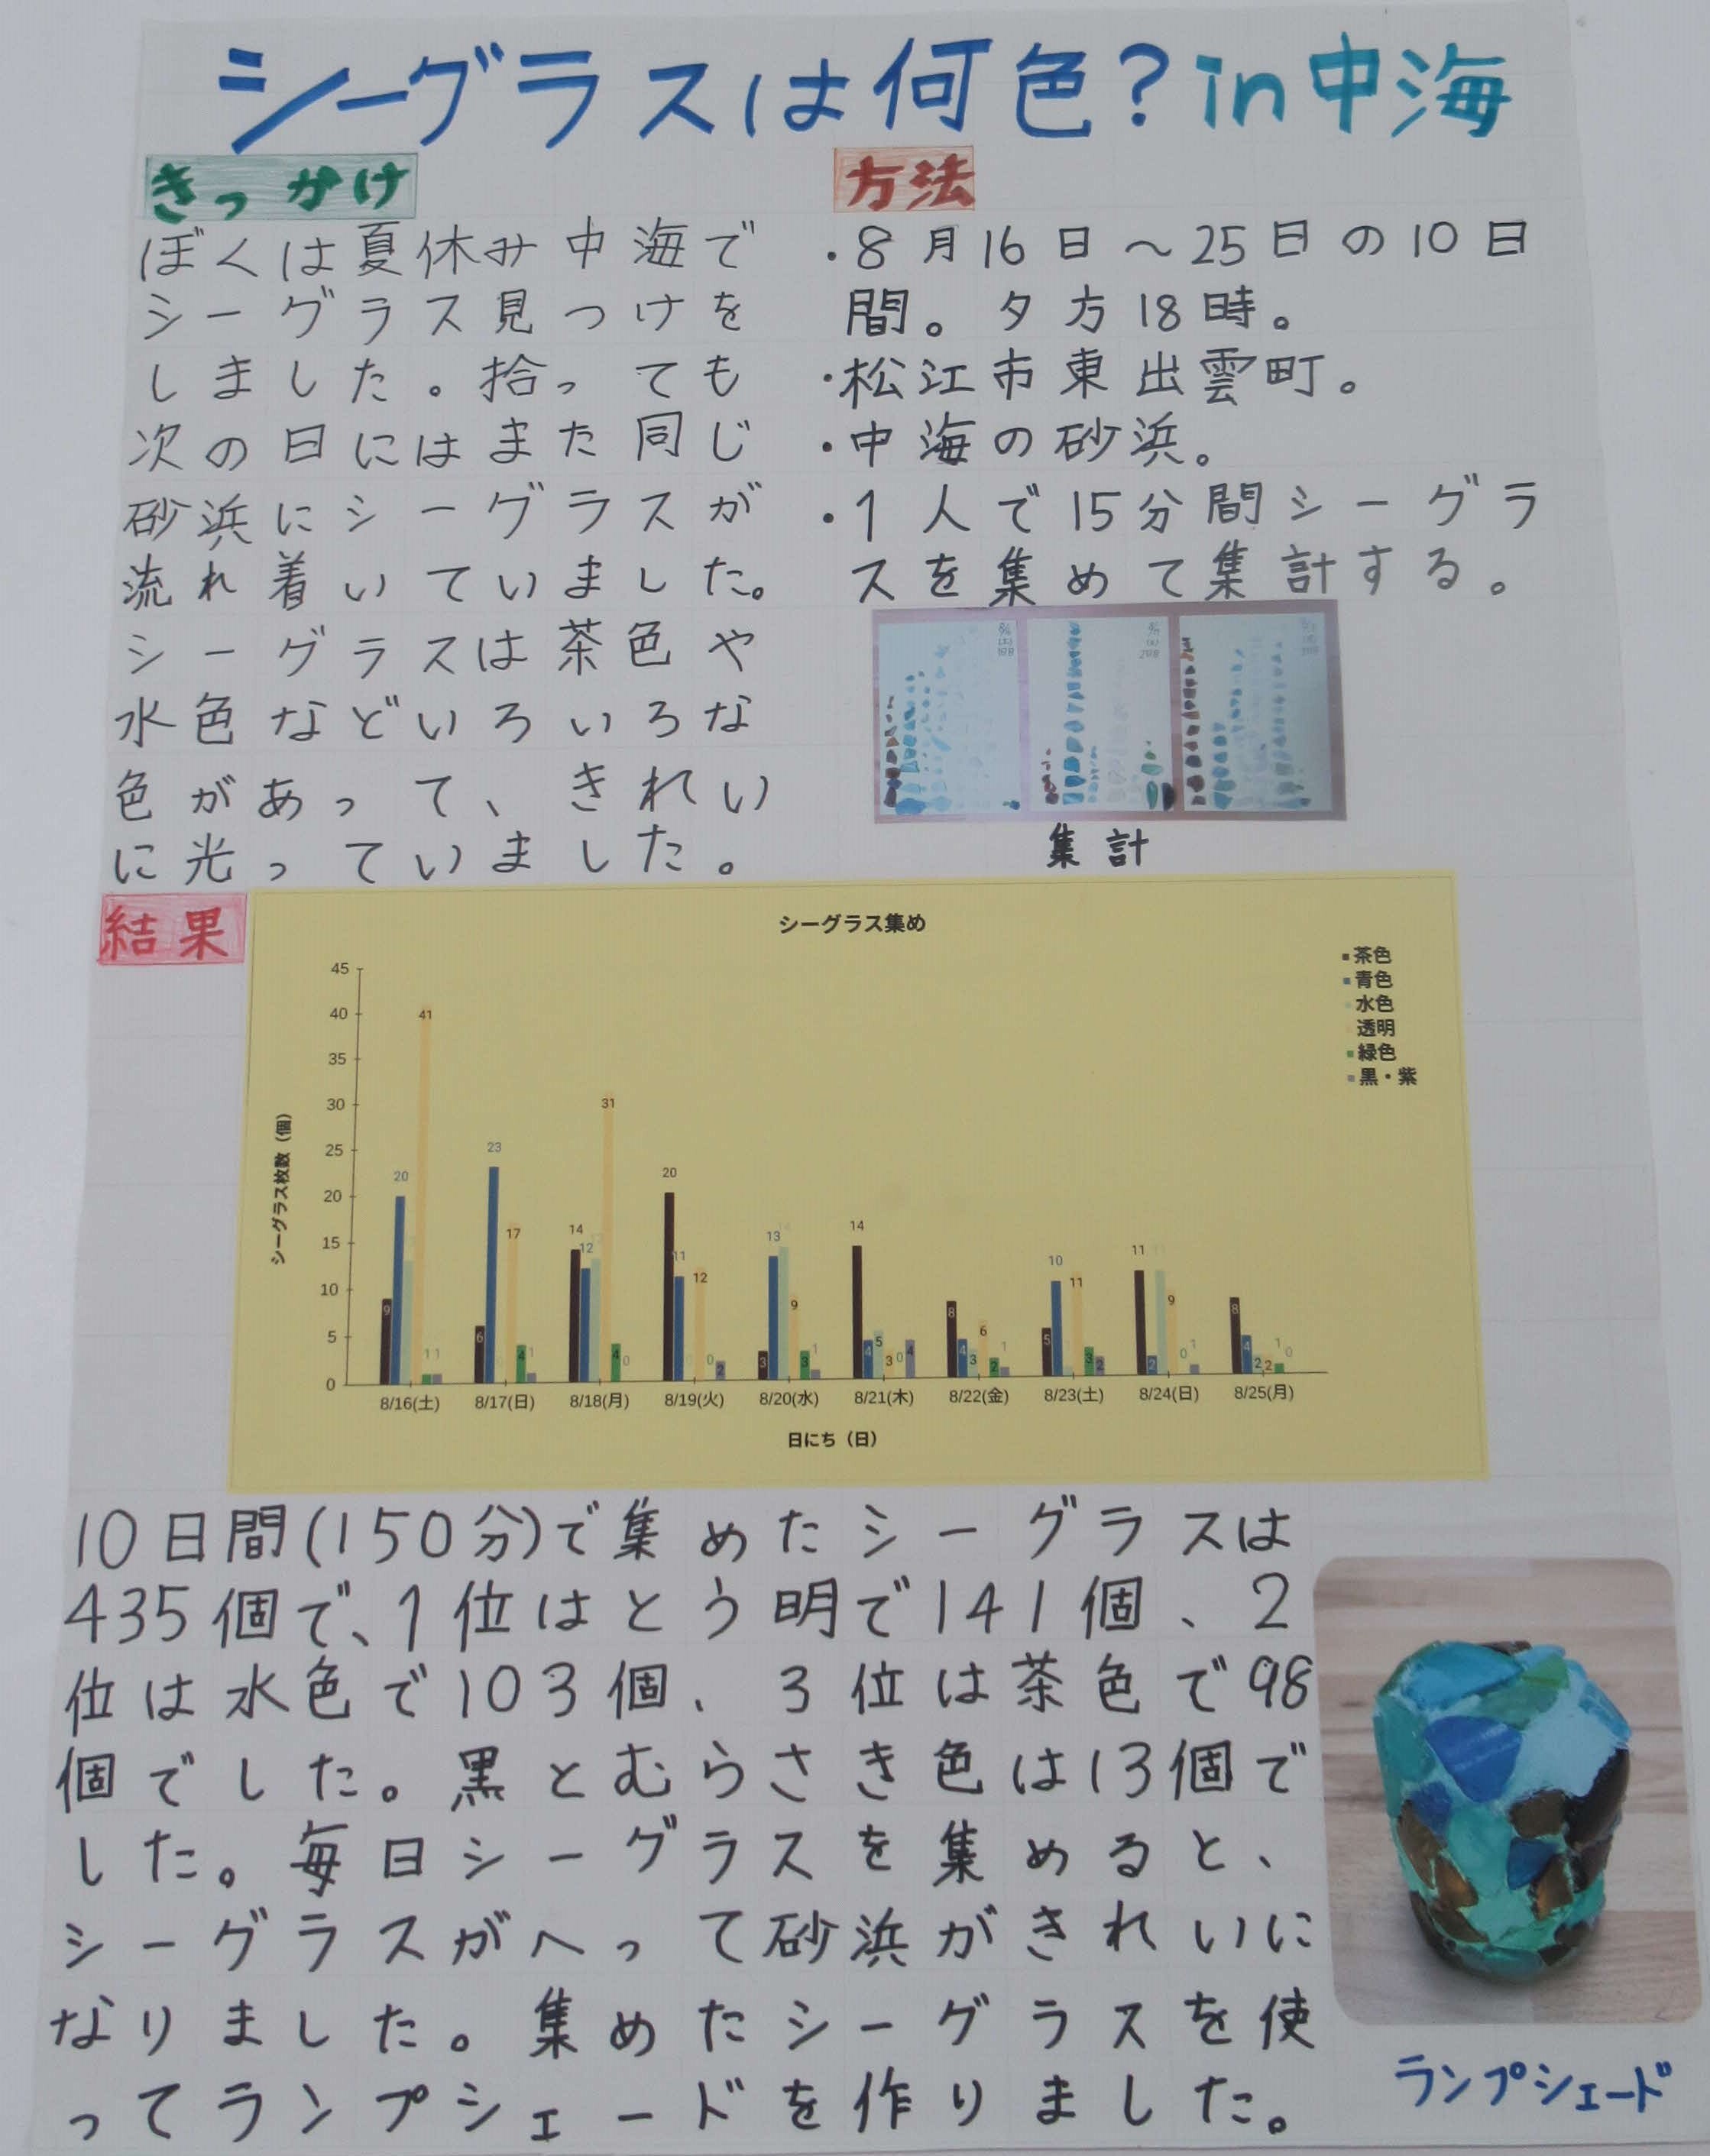 シーグラスは何色?in中海
きっかけ
ぼくは夏休み中海で
シーグラス見つけを
しました。拾っても
次の日にはまた同じ
砂浜にシーグラスが
流れ着いていました。
シーグラスは茶色や
水色などいろいろな
色があって、きれい
に光っていました。
方法
・8月16日〜25日の10日
間。夕方18時。
・松江市東出雲町。
・中海の砂浜。
・1人で15分間シーグラ
スを集めて集計する。
集計
結果
シーグラス集め
茶色
青色
水色
透明
緑色
黒・紫
シーグラス枚数(個)
45
40
35
30
25
20
15
10
5
0
9 20 41 1 1
6 23 17 4 1
14 12 31 4 0
20 11 12 0 2
3 13 14 9 3 1
14 4 5 3 0 4
8 4 3 6 2 1
5 10 11 3 2
11 2 11 9 0 1
8 4 2 2 1 0
8/16(土) 8/17(日) 8/18(月) 8/19(火) 8/20(水) 8/21(木) 8/22(金) 8/23(土) 8/24(日) 8/25(月)
日にち(日)
10日間(150分)で集めたシーグラスは
435個で、1位はとう明で141個、2
位は水色で103個、3位は茶色で98
個でした。黒とむらさき色は13個で
した。毎日シーグラスを集めると、
シーグラスがへって砂浜がきれいに
なりました。集めたシーグラスを使
ってランプシェードを作りました。
ランプシェード